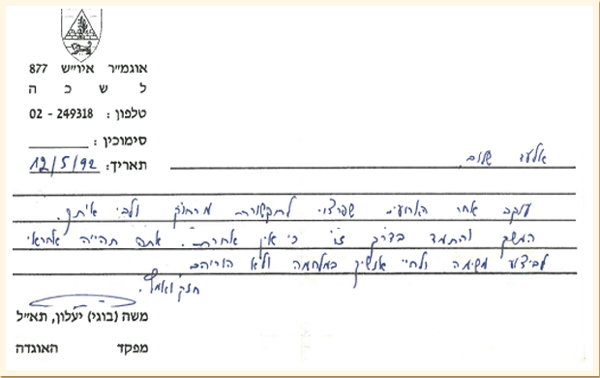 אוגמ״ר איו״ש 877
לשכה
טלפון : 249318 - 02
סימוכין :
תאריך: 12/5/92
אלעד שלום.
עוקב אחרי האירועים שפרצו לתקשורת מרחוק ולבי איתך.
המשך והתמד בדרך זו כי אין אחרת. אתה תהייה אחראי
לביצוע משימה ולחיי אנשיך במלחמה ולא הוריהם.
חזק ואמץ.
משה (בוגי) יעלון, תא״ל
מפקד האוגדה